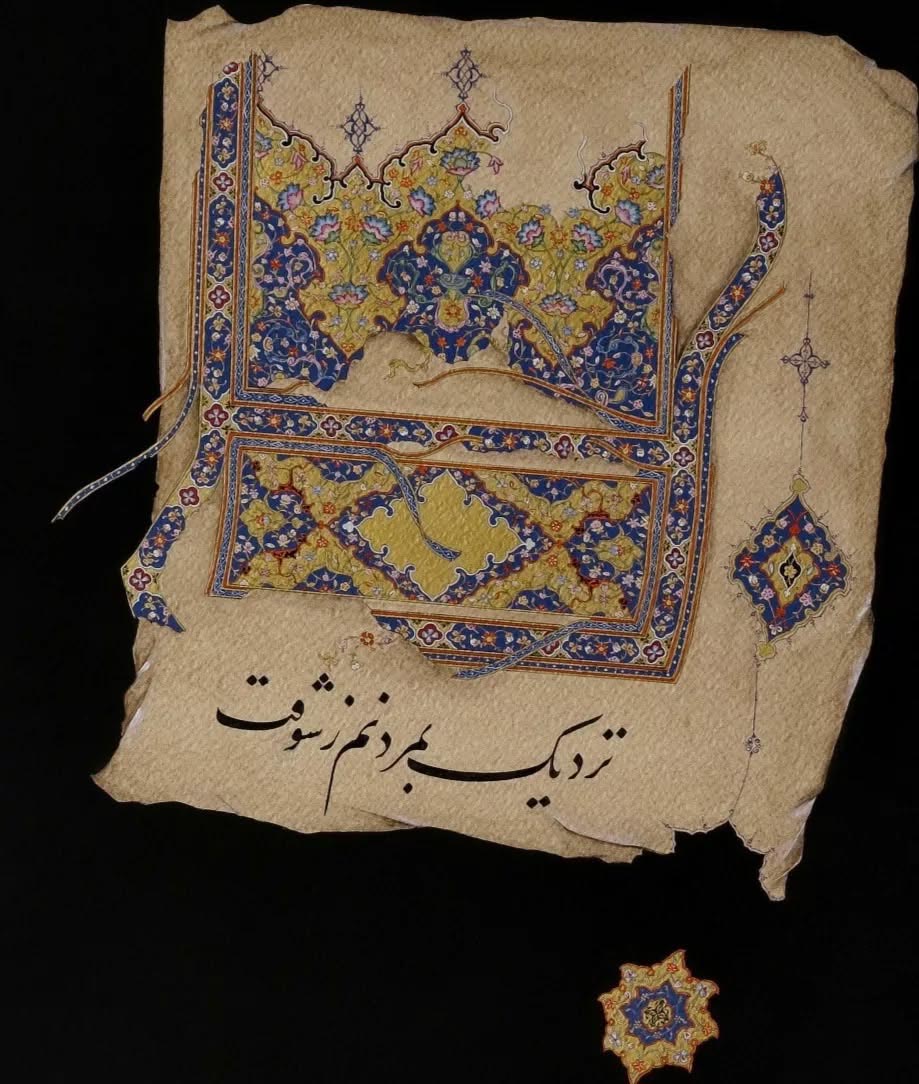 نزدیک بمردنم ز شوقت